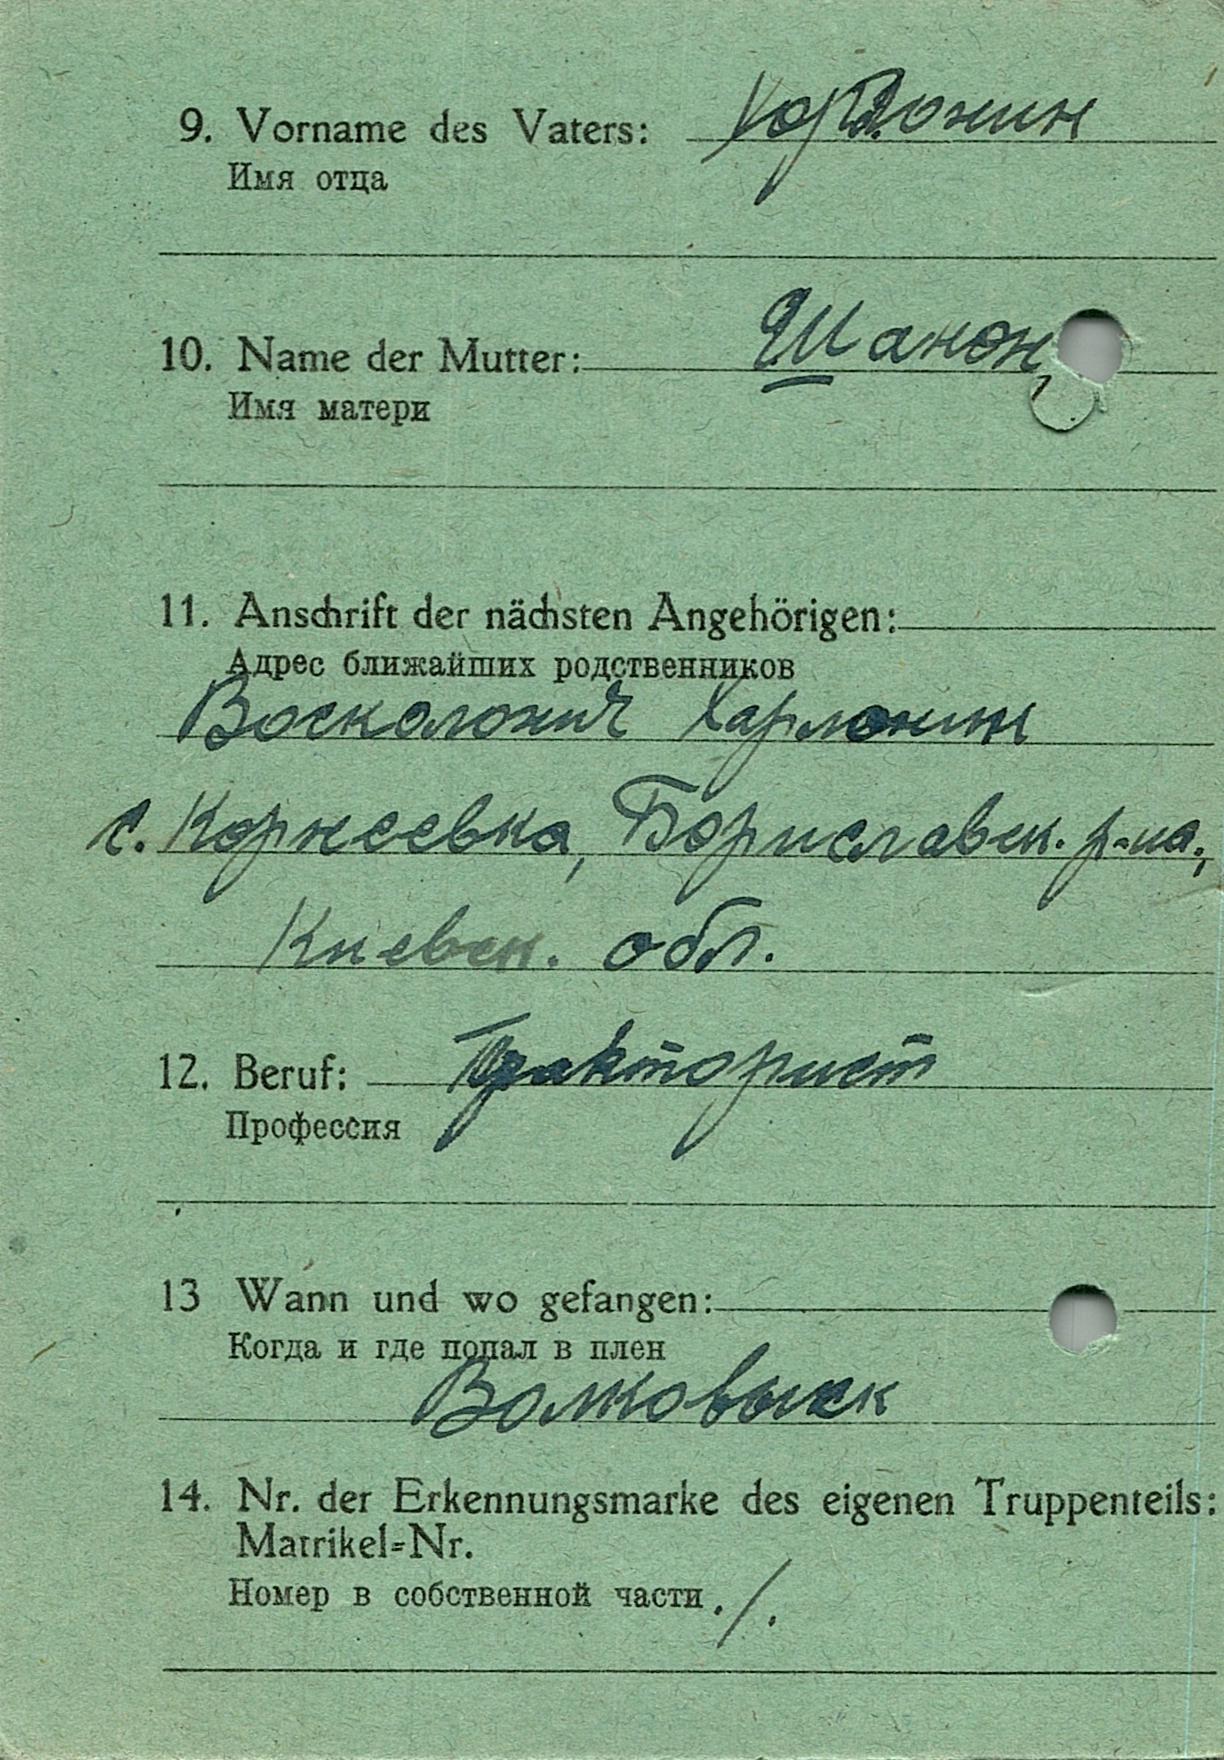 9. Vorname des Vaters:
Имя отца
10. Name der Mutter: Шанон
Имя матери
11. Anschrift der nächsten Angehörigen:
Адрес ближайших родственников
Восколонич Харлонин
с. Корнеевка, Бориславск. р-на,
Киевск. обл.
12. Beruf: Тракторист
Профессия
13 Wann und wo gefangen:
Когда и где попал в плен
Волковыск
14. Nr. der Erkennungsmarke des eigenen Truppenteils:
Matrikel=Nr.
Номер в собственной части ./.